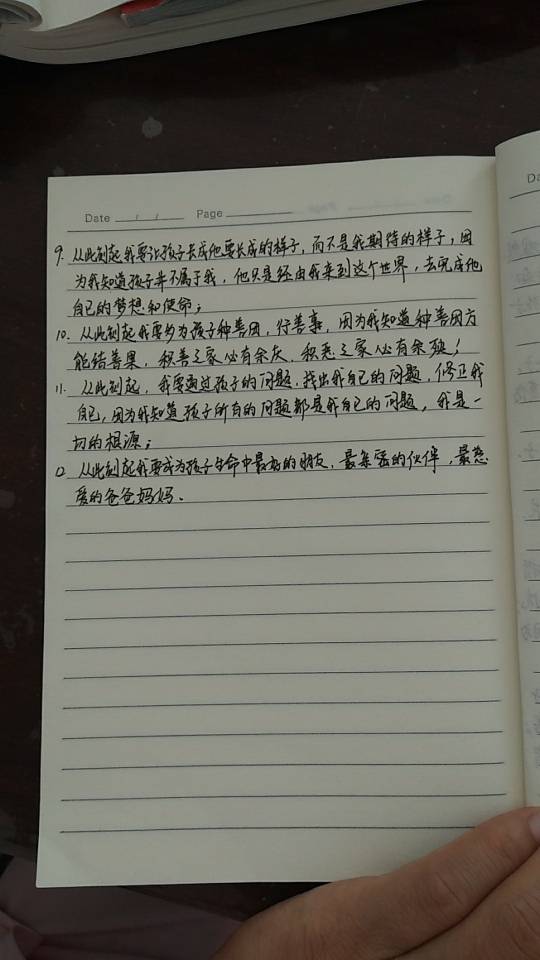 Date / / Page
9. 从此刻起我要让孩子长成他要长成的样子，而不是我期待的样子，因
为我知道孩子并不属于我，他只是经由我来到这个世界，去完成他
自己的梦想和使命；
10. 从此刻起我要多为孩子种善因，行善事，因为我知道种善因方
能结善果，积善之家必有余庆，积恶之家必有余殃！
11. 从此刻起，我要通过孩子的问题，找出我自己的问题，修正我
自己，因为我知道孩子所有的问题都是我自己的问题，我是一
切的根源；
12 从此刻起我要成为孩子生命中最好的朋友，最亲密的伙伴，最慈
爱的爸爸妈妈.